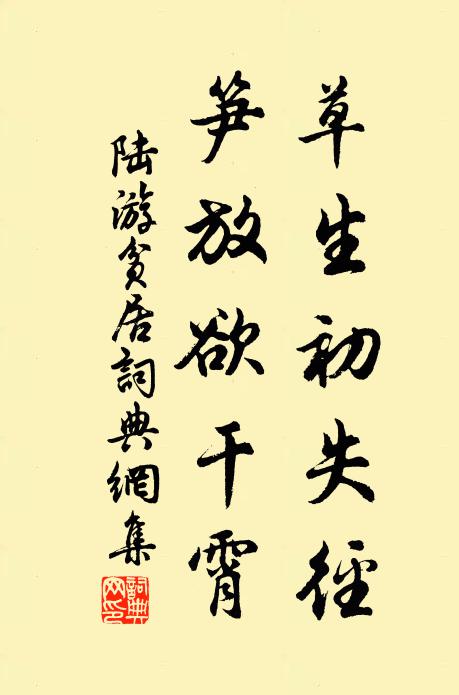 草生初失徑
笋放欲干霄
陆游貧居詞典網集
詞典網印